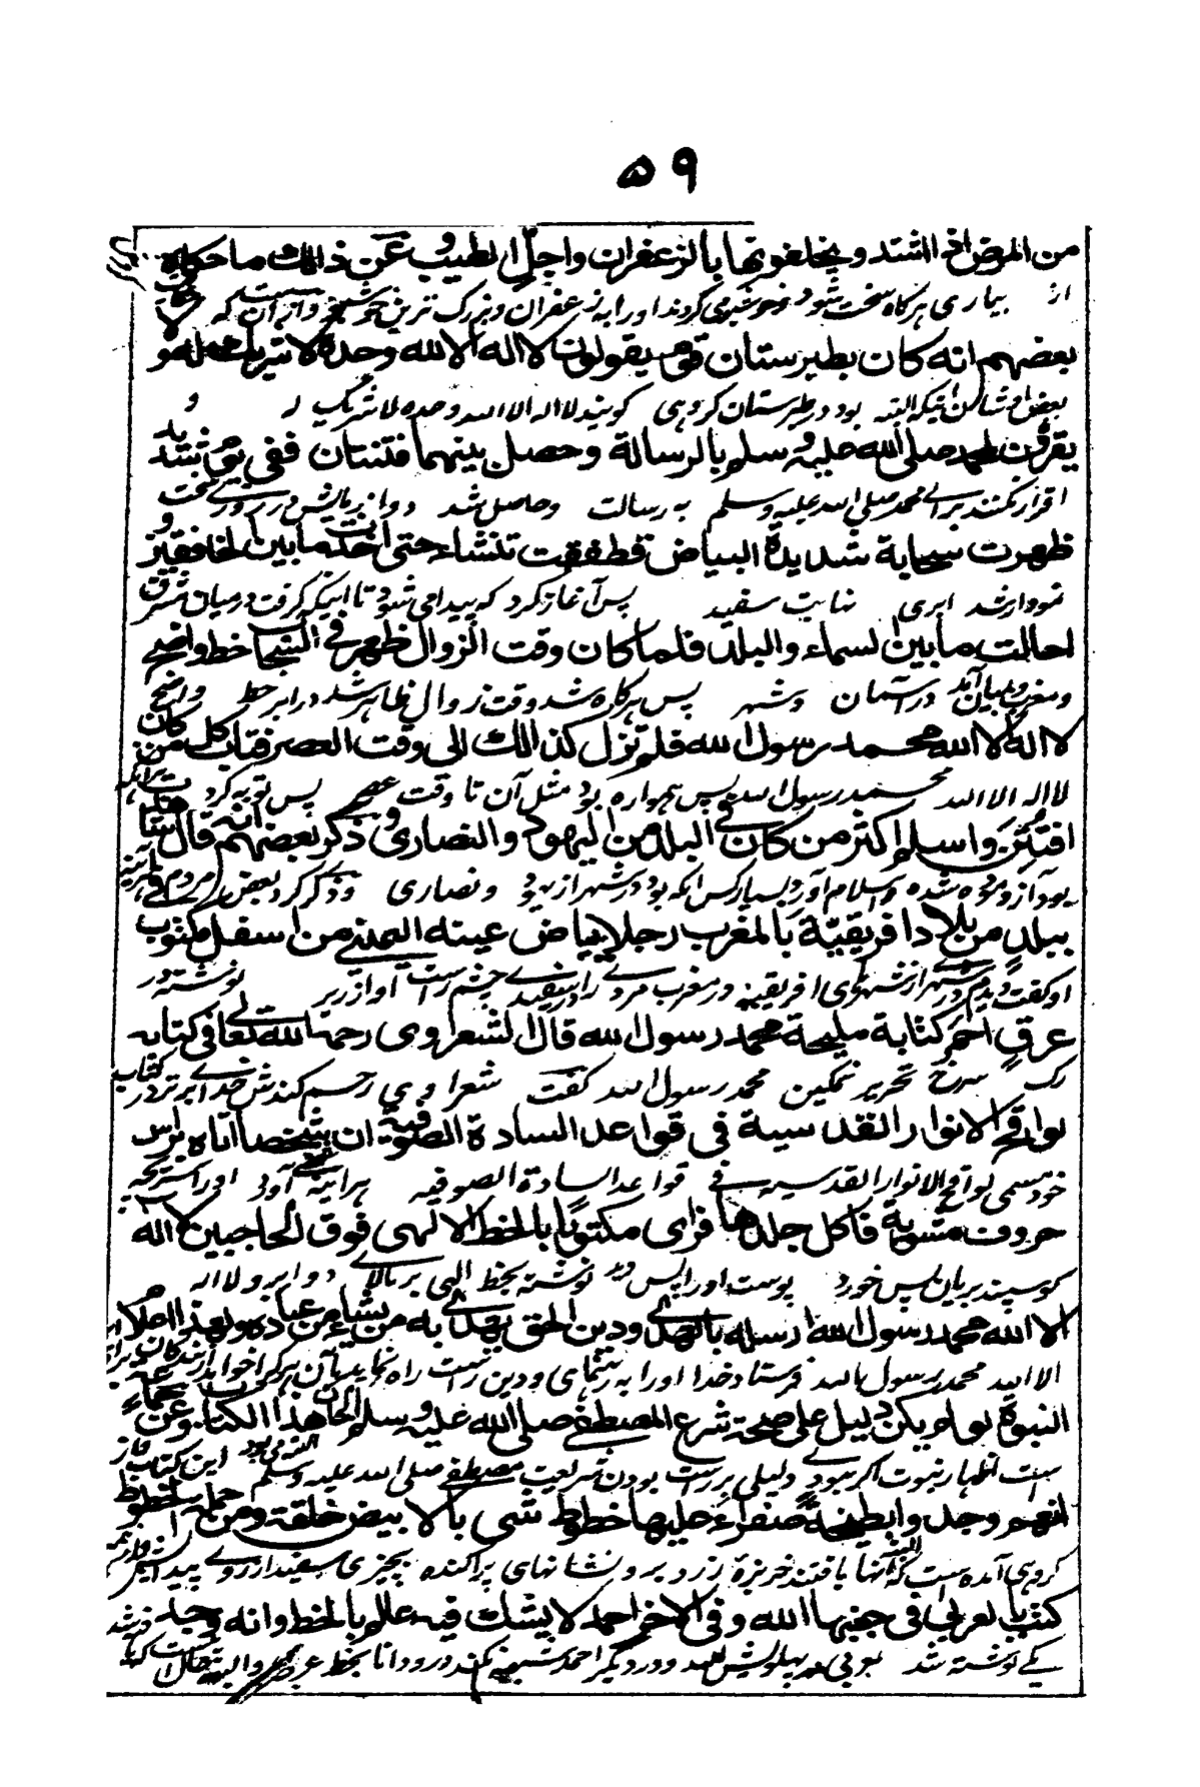 ۵۹
من المرض اذا اشتد ويخلفونها بالزعفران واجل الطيوب وعن ذالك ما حكاه
از بیماری هرگاه سخت شود و خوشبو می کردند اورا بزعفران و بزرگ ترین خوشبو و ازان ست که
بعضهم انه كان بطبرستان قوم يقولون لا اله الا الله وحده لا شريك له ولا
بعض اوشان اینکه البته بود در طبرستان گروهی گویند لا اله الا الله وحده لا شریک له و
يقرون لمحمد صلى الله عليه وسلم بالرسالة وحصل بينهما فتنتان ففي يوم شديد
اقرار نکنند برای محمد صلی الله علیه وسلم به رسالت و حاصل شد دو آزمایش در روزے سخت
ظهرت سحابة شديدة البياض فطفقت تنشاء حتى اخذت ما بين الخافقين و
نمودار شد ابری نهایت سفید پس آغاز کرد که پیدا می شود تا اینکه گرفت درمیان مشرق
احالت ما بين السماء والبلد فلما كان وقت الزوال ظهر في السحاب خط واضح
و مغرب و بمیان آمد در آسمان و شهر پس هرگاه شد وقت زوال ظاهر شد در ابر خط واضح
لا اله الا الله محمد رسول الله فلم تزل كذالك الى وقت العصر فتاب كل من كان
لا اله الا الله محمد رسول الله پس همواره بود مثل آن تا وقت عصر پس توبه کرد
افتتن واسلم اكثر من كان في البلد من اليهود والنصارى وذكر بعضهم انه قال
بود آزموده شده و اسلام آورد بسیار کس انکه بود در شهر از یهود و نصاری و ذکر کرد بعض مردم
ببلد من بلاد افريقية بالمغرب رجلا ببياض عينه اليمنى من اسفل مكتوب
او گفت دیدم در شهر از شهرهای افریقیه در مغرب مردے را در سفیدے چشم راست او از زیر نوشته در
عرق احمر كتابة مليحة محمد رسول الله قال الشعراوى رحمه الله تعالى في كتابه
رگ سرخ تحریر نمکین محمد رسول الله گفت شعراوی رحم کندش خداے برتر در کتاب
لواقح الانوار القدسية فى قواعد السادة الصوفية ان شخصا اتاه براس
خود مسمی لواقح الانوار القدسیه فے قواعد السادة الصوفیه
حروف مشوية فاكل جلدها فراى مكتوبا بالخط الالهى فوق الحاجبين لا اله
گوسپند بریان پس خورد پوست اورا پس دید نوشته بخط الهی بر بالاے دو ابرو لا اله
الا الله محمد رسول الله ارسله بالهدى ودين الحق يهدى به من يشاء من عباده
الا الله محمد رسول الله فرستاد خدا اورا به رهنمای و دین راست راه نماید بآن هرکرا خواهد از بندگان
النبوة لو لم يكن دليل على صحة شرع المصطفى صلى الله عليه وسلم لكان هذا الكتاب وعن
ست اظهار نبوت اگر نبودے دلیلی بر راست بودن شریعت مصطفے صلی الله علیه وسلم البته می بود این کتاب
انهم وجدوا بطيخة صفراء عليها خطوط شتى بالابيض خلقة ومن جملة الخطوط
گروهی آمده ست که انها یافتند خربزه زرد برو نشانهای پراکنده بچیزی سفید از روے پیدائش
كتب بالعربى فى جنبها الله وفى الاخر احمد لا يشك فيه عالم بالخط وانه وجد
یکے نوشته شد بعربی در پهلویش الله و در دیگر احمد شبه نمی کند درو دانا بخط عربی